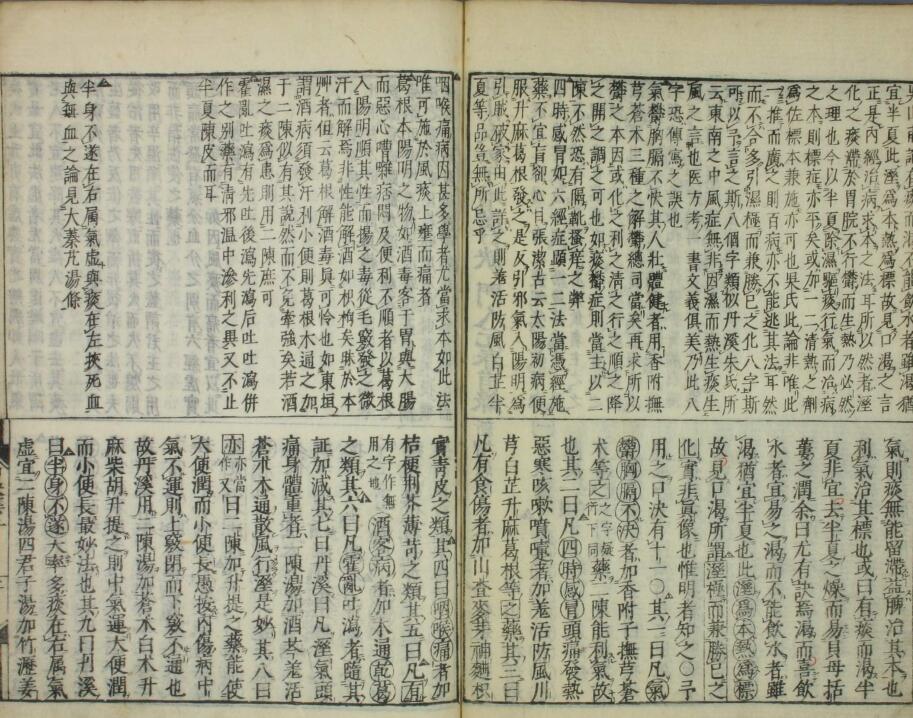 宜半夏此溼為本熱為標故見口渴之言
正是內經治病求本之法耳所以然者溼
化之痰滯於胃脘不行鬱而生熱乃必然
之理也今以半夏除濕驅痰行氣而治病
之本則標症亦平矣或加一二清熱之劑
為佐標本兼施亦可也吳氏此論非唯此
一推而廣之則百病亦不能逃其法耳然
不合多引濕極而兼勝已之化八字斯
可以言之斯八個字類似丹溪朱氏所
云東南之中風症無非因濕而熱生痰生
風之言也医方考一書文義俱美乃此一
字恐傳寫之誤也
氣鬱胸膈不快其人壯體健者用香附撫
芎蒼木三種之解鬱總司當矣再求所以
鬱之本因或化之利之清之行之順之降
之開之調之可也如痰鬱症則當主以二
陳不然恐有隔靴搔痒之弊
四時感冒如六經症顯一二法當憑經施
藥不宜盲張潔古云太陽初病便
服升麻葛根發之是反引邪氣入陽明為
引賊破家由此之則羌活防風白芷半
夏等品豈無所忌乎
利則痰無能留滯益脾治其本也
利氣治其標也或曰有痰而渴半
夏非宜去半夏之燥而易貝母括
蔞之潤余曰尤有訣焉渴而喜飲
水者宜易之渴而不能飲水者雖
渴猶宜半夏也此溼為本熱為標
故見口渴所謂溼極而兼勝已之
化實非真像也惟明者知之〇予
用之口訣有十一〇其一曰凡氣
鬱胸膈不快者加香附子撫芎蒼
术等之之字疑衍下同藥二陳能利氣故
也其二曰凡四時感冒頭痛發熱
惡寒咳嗽噴嚏者加羌活防風川
芎白芷升麻葛根等之藥其三曰
凡有食傷者加山查麥芽神麯枳
咽喉痛病因甚多學者尤當求本如此法
唯可施於風痰上壅而痛者
葛根本陽明之物如酒毒客于胃與大腸
而惡心嘈雜痞悶及便利不順者以葛根
入陽明順其性而揚之毒從毛竅發之微
汗而解焉非性能解酒如根枸矣昧於本
艸者但云葛根解酒毒真可怜也如東垣
謂酒病須發汗利小便則葛根木通之加
于二陳似有其說然而不免牽強矣若酒
濕之痰為患則用二陳庶可
霍亂吐瀉有先吐後瀉先瀉后吐吐瀉併
作之別藥有清邪温中滲利之異又不止
半夏陳皮而耳
半身不遂在右属氣虛與痰在左挾死血
與無血之論見大秦艽湯條
實青皮之類其四曰咽喉痛者加
桔梗荊芥薄苛之類其五曰凡有有字作無用之地劑
酒客病者加木通乾葛
之類其六曰凡霍亂吐瀉者隨其
証加減其七曰丹溪曰凡溼氣頭
痛身體重者二陳湯加酒芩羌活
蒼朮木通散風行溼足妙其八曰
亦亦當作又曰二陳加升提之藥能使
大便潤而小便長愚按內傷病中
氣不運則上竅閉而下竅不通也
故丹溪用二陳湯加蒼木白木升
麻柴胡升提之則中氣運大便潤
而小便長最妙法也其九曰丹溪
曰半身不遂大率多痰在右属氣
虛宜二陳湯四君子湯加竹瀝姜